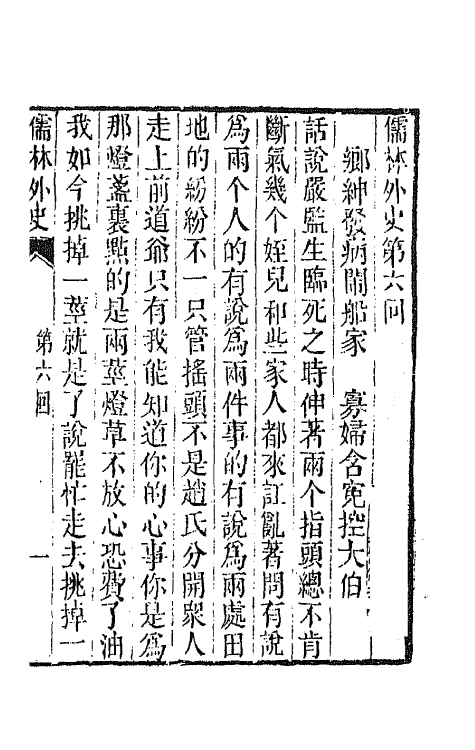 儒林外史第六回
鄉紳發病鬧船家　寡婦含冤控大伯
話說嚴監生臨死之時伸著兩个指頭總不肯
斷氣幾个姪兒和些家人都來訌亂著問有說
爲兩个人的有說爲兩件事的有說爲兩處田
地的紛紛不一只管搖頭不是趙氏分開衆人
走上前道爺只有我能知道你的心事你是爲
那燈盞裏點的是兩莖燈草不放心恐費了油
我如今挑掉一莖就是了說罷忙走去挑掉一
儒林外史
第六回
一